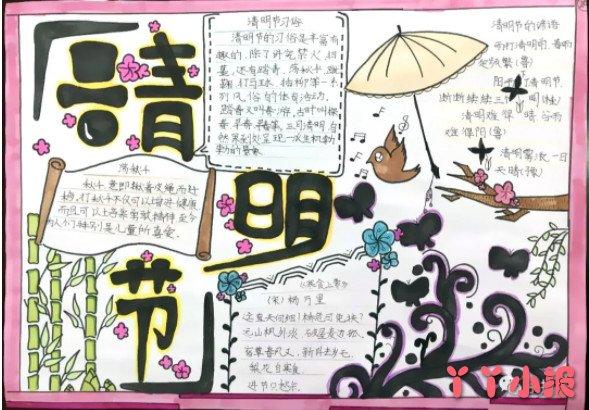 清明节
清明节习俗
清明节的习俗是丰富有
趣的,除了讲究禁火、扫
墓,还有踏青、荡秋千、蹴
鞠、打马球、插柳等一系
列风俗的体育活动
踏青又叫春游,古时叫探
春、寻春等。三月清明,自
然界到处呈现一派生机勃
勃的景象
荡秋千
秋千,意即揪着皮绳而迁
移,打秋千不仅可以增进健康
而且可以培养勇敢精神,至今
为人们特别是儿童的喜爱。
清明节的谚语
雨打清明前,春雨
定频繁(鲁)
阳
清明节,
断断续续三个
清明难得晴,谷雨
难得阴(鲁)
清明雾浓,一日
天晴
(宋)杨万里
远山枫外淡,破屋麦边孤
宿草春风又,新阡去岁无
梨花自寒食
进节只愁余
丫丫小报